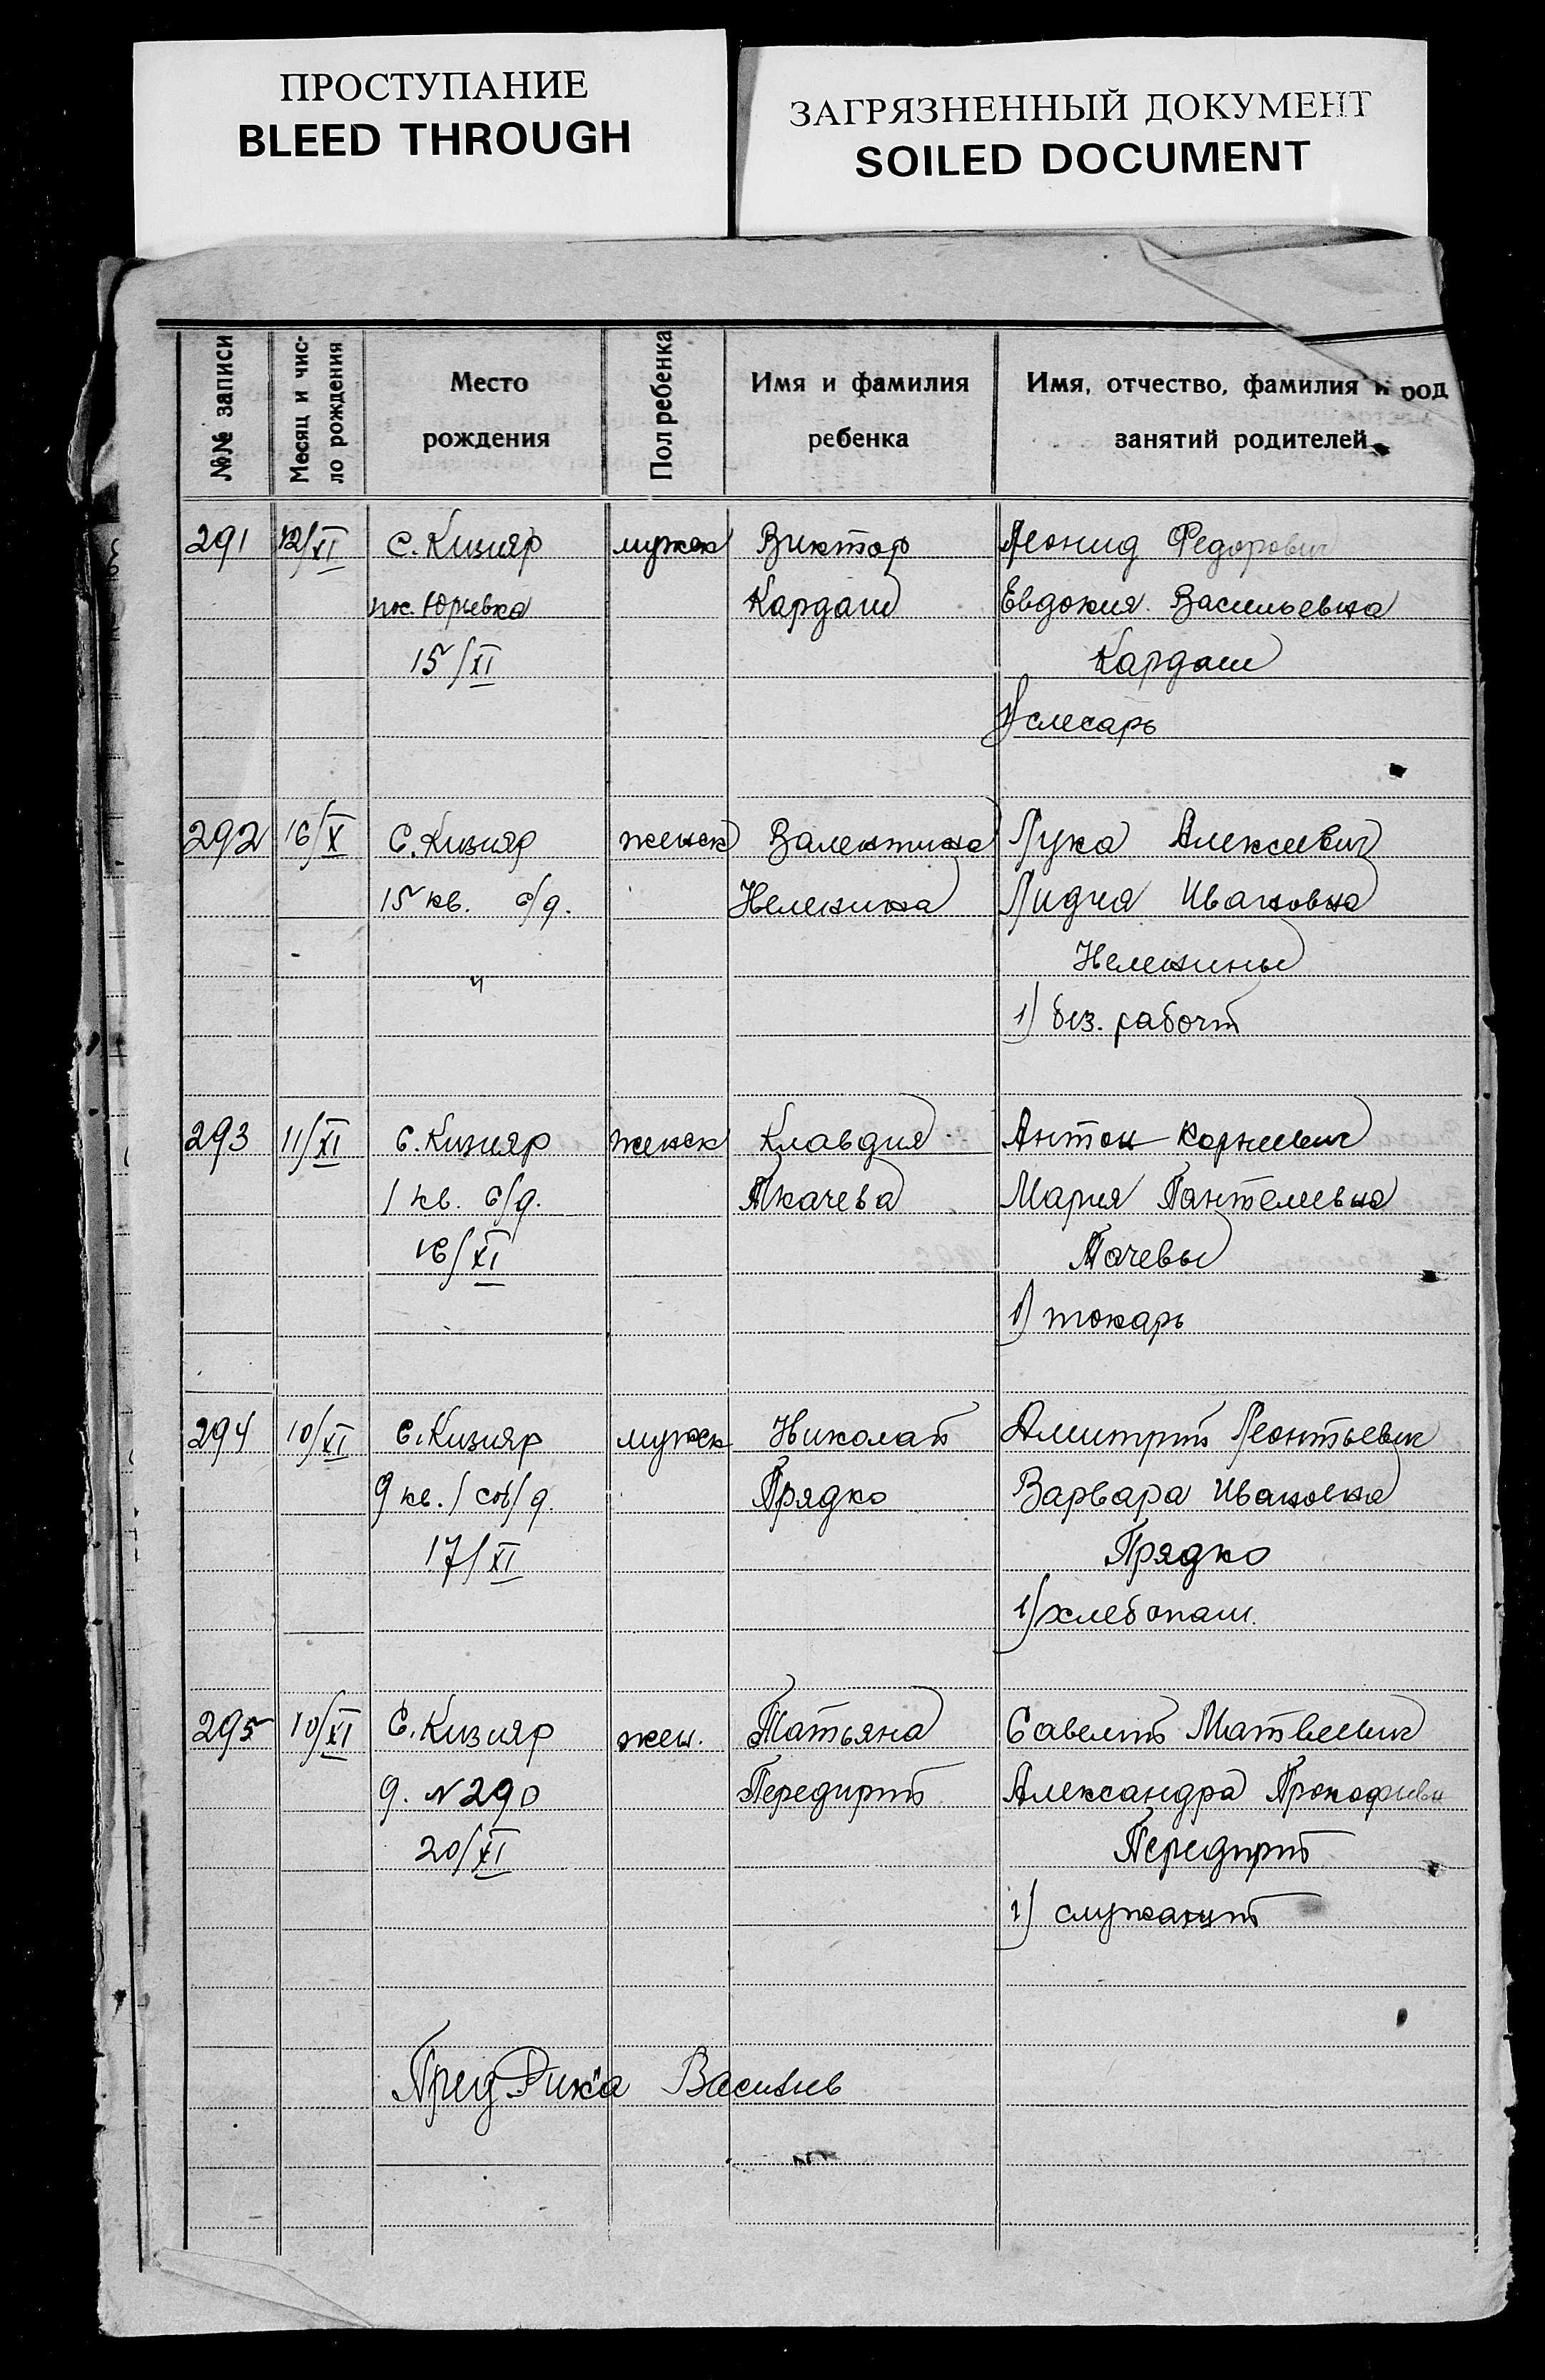 ПРОСТУПАНИЕ
BLEED THROUGH
ЗАГРЯЗНЕННЫЙ ДОКУМЕНТ
SOILED DOCUMENT
№№ записи
Месяц и чис-
ло рождения
Место
рождения
Пол ребенка
Имя и фамилия
ребенка
Имя, отчество, фамилия и род
занятий родителей
291 12/XI С. Кизияр мужск Виктор Леонид Федорович
пос. Юрьевка Кардаш Евдокия Васильевна
15/XI Кардаш
1) слесарь
292 16/X С. Кизияр женск Валентина Лука Алексеевич
15 кв. с/д. Нелекина Лидия Ивановна
" Нелекины
1) без. работ
293 11/XI С. Кизияр женск Клавдия Антон Корнеевич
1 кв. с/д. Ткачева Мария Пантелеевна
16/XI Ткачевы
1) токарь
294 10/XI С. Кизияр мужск Николай Дмитрий Леонтьевич
9 кв. / соб/д. Прядко Варвара Ивановна
17/XI Прядко
1) хлебопаш.
295 10/XI С. Кизияр жен. Татьяна Савелий Матвеевич
д. № 290 Передирий Александра Прокофьевн
20/XI Передирий
1) служащий
Пред Рика